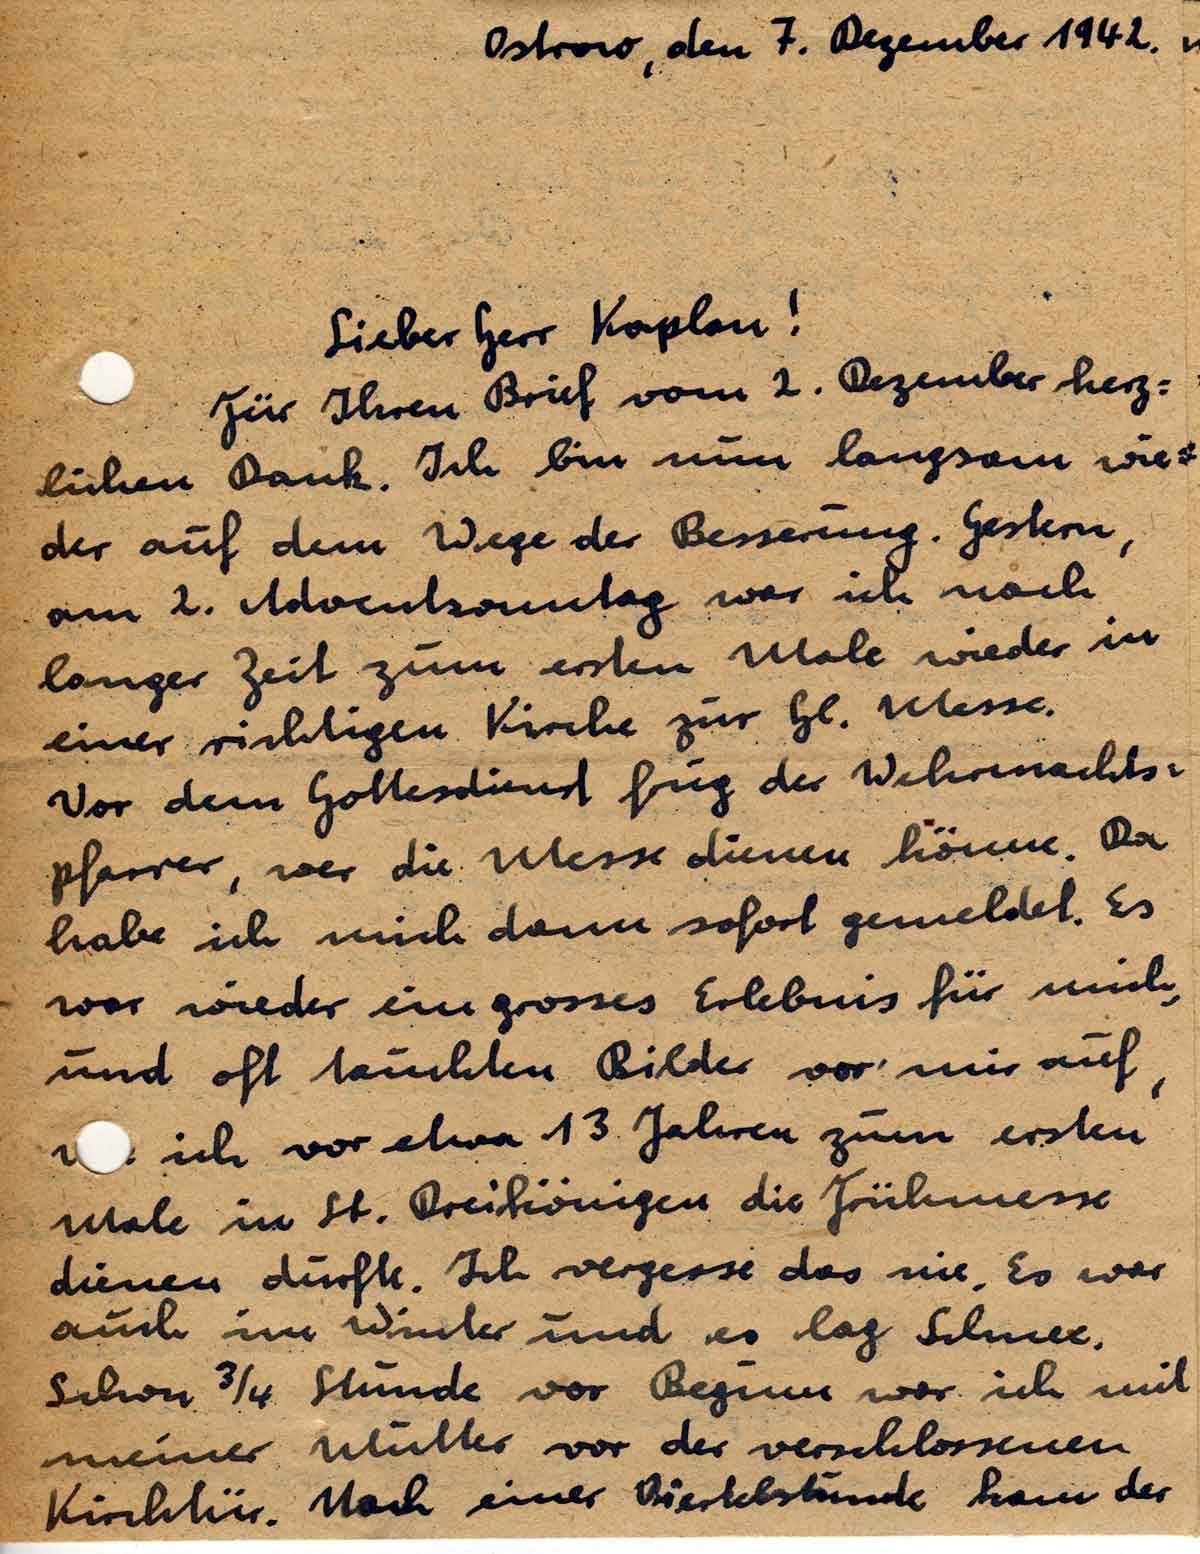 Ostrow, den 7. Dezember 1942.
Lieber Herr Kaplan!
Für Ihren Brief vom 2. Dezember herz=
lichen Dank. Ich bin nun langsam wie=
der auf dem Wege der Besserung. Gestern,
am 2. Adventsonntag war ich nach
langer Zeit zum ersten Male wieder in
einer richtigen Kirche zur Hl. Messe.
Vor dem Gottesdienst frug der Wehrmachts=
pfarrer, wer die Messe dienen könne. Da
habe ich mich dann sofort gemeldet. Es
war wieder ein grosses Erlebnis für mich,
und oft tauchten Bilder vor mir auf,
ich vor etwa 13 Jahren zum ersten
Male in St. Dreikönigen die Frühmesse
dienen durfte. Ich vergesse das nie. Es war
auch im Winter und es lag Schnee.
Schon 3/4 Stunde vor Beginn war ich mit
meiner Mutter vor der verschlossenen
Kirchtür. Nach einer Viertelstunde kam der